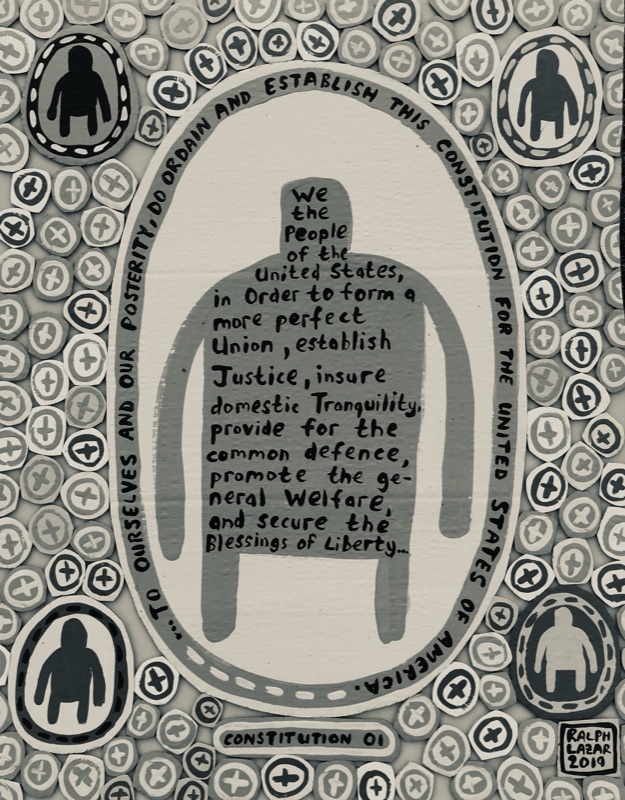 We
the
People
of the
United States,
in Order to form a
more perfect
Union, establish
Justice, insure
domestic Tranquility,
provide for the
common defence,
promote the ge-
neral Welfare,
and secure the
Blessings of Liberty...
...TO OURSELVES AND OUR POSTERITY, DO ORDAIN AND ESTABLISH THIS CONSTITUTION FOR THE UNITED STATES OF AMERICA.
CONSTITUTION 01
RALPH
LAZAR
2019